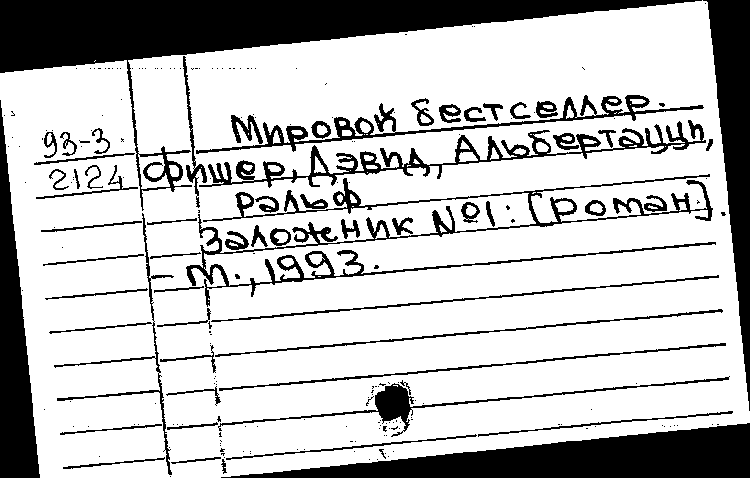 Мировой бестселлер.
93-3
2124
Фишер, Дэвид, Альбертацци,
Ральф.
Заложник №1: [роман].
– М., 1993.